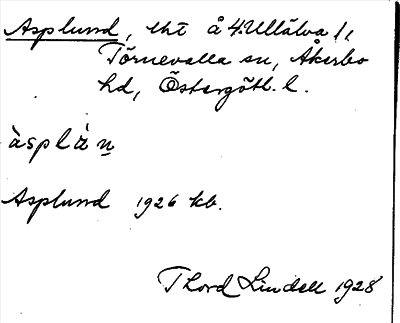 Asplund, lht å 4. Ullälva 1/1
Törnevalla sn, Åkerbo
hd, Östergötl. l.
àsplàn
Asplund 1926 kb.
Thord Lindell 1928